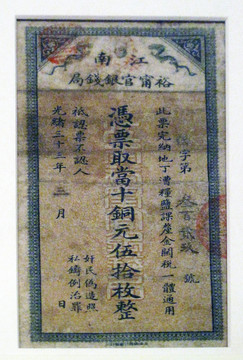 江南
裕甯官銀錢局
字第 號
此票完納地丁漕糧鹽課釐金關稅一體通用
憑票取當十銅元伍拾枚整
祗認票不認人
奸民偽造照
私鑄例治罪
光緒三十三年 月 日